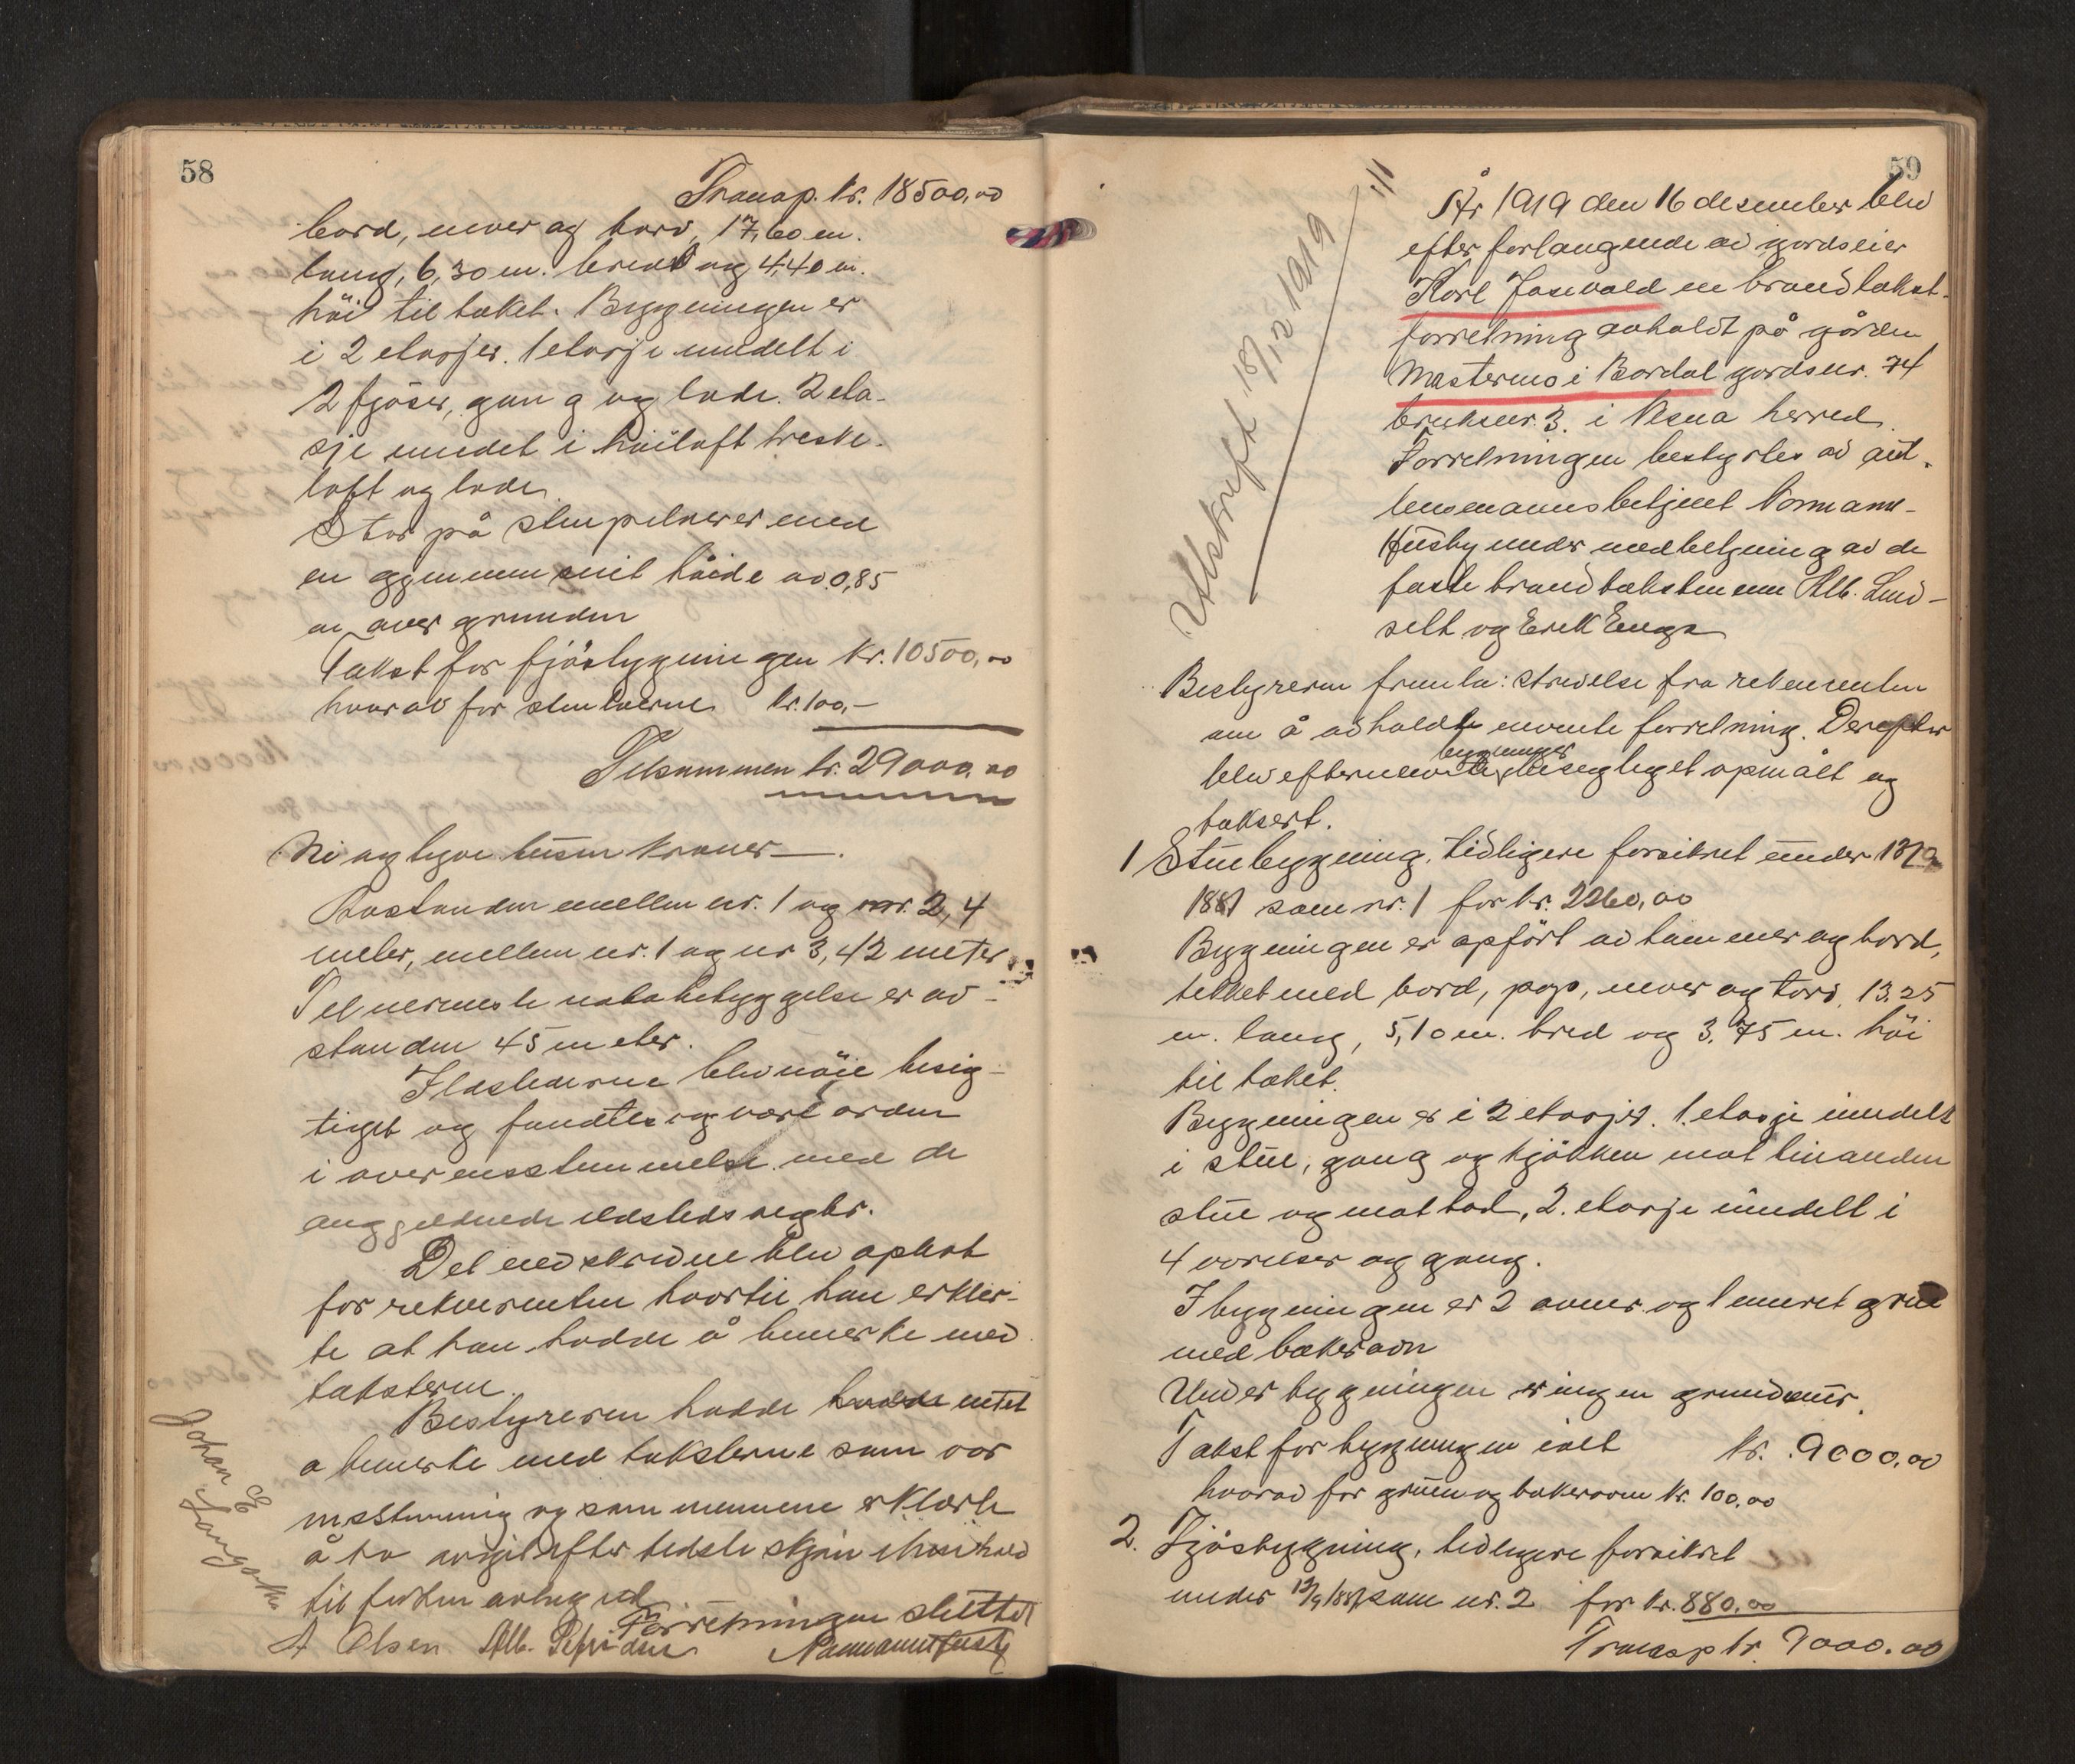 58
Transp. kr. 18500,00
bord, never og torv, 17,60 m.
lang, 6,30 m. bred og 4,40 m.
höi til taket. Bygningen er
i 2 etasjer. 1 etasje inndelt i
2 fjöser, gang og lade. 2 eta-
sje inndelt i höiloft treske-
loft og lade.
Står på stenpilarer med
en gjennemsnit höide av 0,85
m over grunden
Takst for fjösbygningen kr. 10500,00
hvorav for kr. 100,-
Tilsammen kr. 29000,00
Ni og tyve tusen kroner —.
Avstanden mellem nr. 1 og nr. 2, 4
meter, mellem nr. 1 og nr 3, 42 meter
Til nermeste nabobebyggelse er av-
standen 45 meter.
Ildstederne blev nöie besig-
tiget og fandtes og være i orden
i overensstemmelse med de
angjeldende ildstedsregler.
Det nedskrevne blev oplest
for rekvirenten hvortil han erkler-
te at han hadde å bemerke med
taksterne.
Bestyreren hadde intet
a bemerke med taksterne som var
og som mennene erklærte
å ha avgit efter bedste skjön i henhold
til forhen avlagt ed
Forretningen sluttet
A Olsen Alb. Normann Husby
Johan E
59
År 1919 den 16 desember blev
efter forlangende av gårdseier
Karl en brandtakst-
forretning avholdt på gården
Mastermo i Bardal gardsnr. 74
bruksnr. 3. i Nesna herred.
Forretningen bestyrtes av aut.
lensmannsbetjent Normann
Husby under medbetjening av de
faste brandtakstmenn Alb. Lind-
selt og Erik Enge
Utskrift 18/12 1919
Bestyreren fremla: skrivelse fra rekvirenten
om å avholde nevnte forretning. Derefter
blev efternevnte bygninger besigtiget opmålt og
taksert.
1 Stuebygning, tidligere forsikret under 13/9
1881 som nr. 1 for kr. 2260,00
Bygningen er opfört av tømmer og bord,
tekket med bord, pap, never og torv, 13,25
m. lang, 5,10 m. bred og 3,75 m. höi
til taket.
Bygningen er i 2 etasjer. 1. etasje inndelt
i stue, gang og kjökken mot hinanden
stue og matbod, 2. etasje inndelt i
4 værelser og gang.
I bygningen er 2 ovner og 1 muret grue
med bakerovn
Under bygningen er ingen grundmur.
Takst for bygningen ialt kr. 9000,00
hvorav for gruen og bakerovn kr. 100,00
2. Fjösbygning, tidligere forsikret
under 13/9 1881 som nr. 2 for kr. 880,00
Transp kr. 9000.00